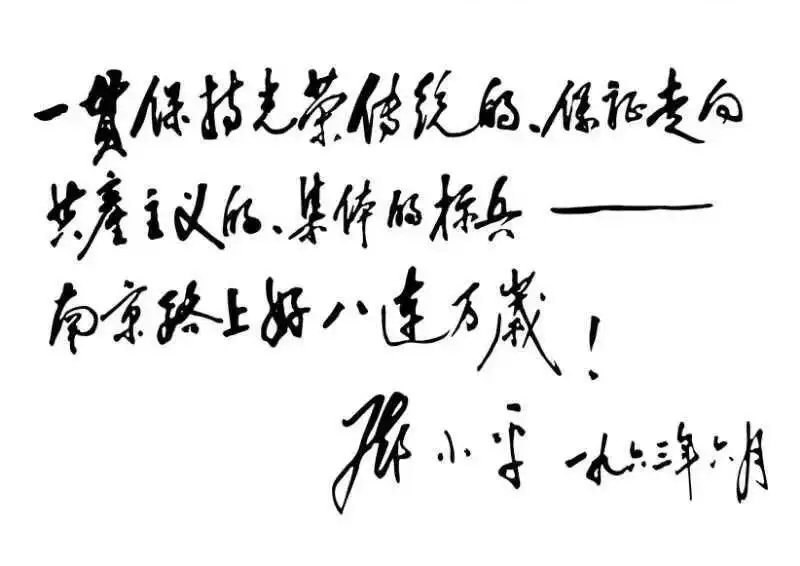 一貫保持光荣传统的、保证走向
共產主义的、集体的标兵——
南京路上好八连万歲！
邓小平 一九六三年六月